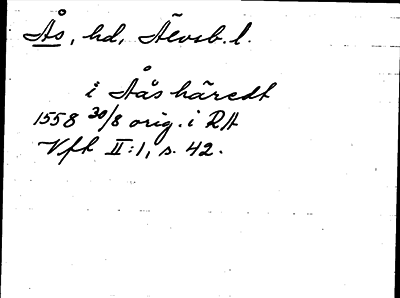 Ås, hd, Älvsb. l.
i Åås häredt
1558 30/8 orig. i RA
Vft II:1, s. 42.